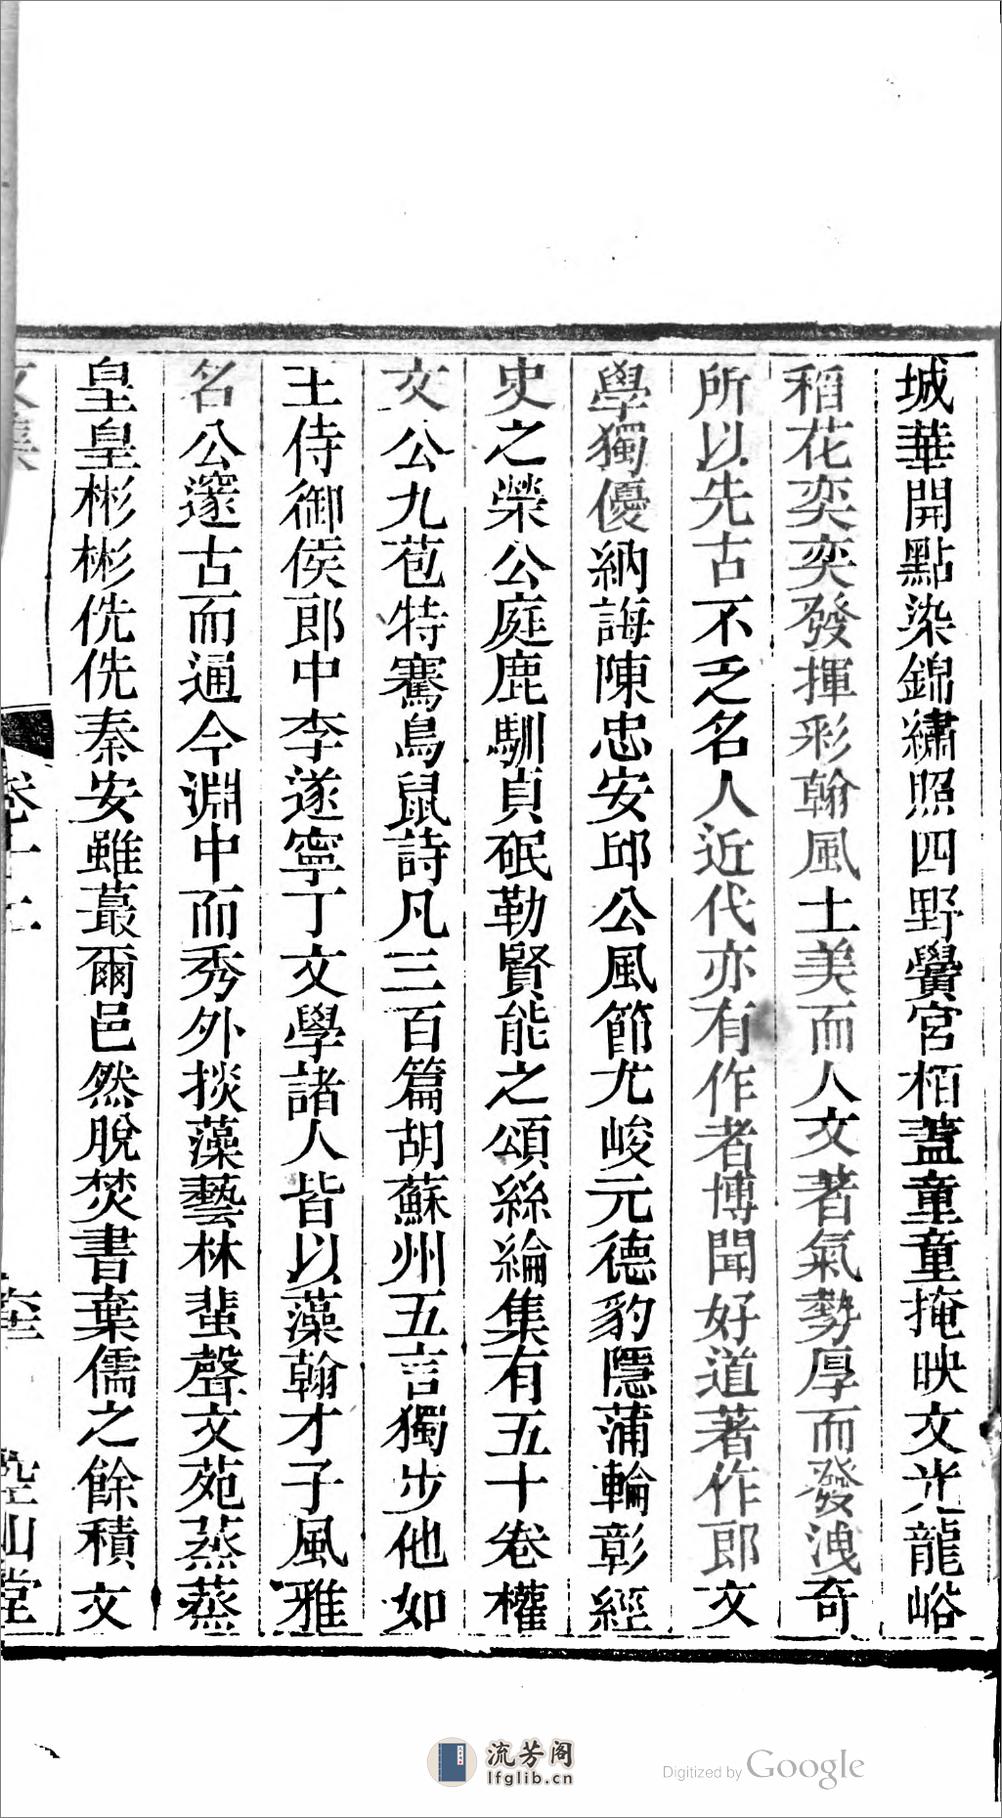 城華開點染錦繡照四野黌宮栢蓋童童掩映文光龍峪
稻花奕奕發揮彩翰風土美而人文著氣勢厚而發洩奇
所以先古不乏名人近代亦有作者博聞好道著作郎文
學獨優納誨陳忠安邱公風節尤峻元德豹隱蒲輪彰經
史之榮公庭鹿馴貞砇勒賢能之頌絲綸集有五十卷權
文公九苞特騫鳥鼠詩凡三百篇胡蘇州五言獨步他如
王侍御侯郎中李遂寧丁文學諸人皆以藻翰才子風雅
名公邃古而通今淵中而秀外掞藻藝林蜚聲文苑蒸蒸
皇皇彬彬侁侁秦安雖蕞爾邑然脫焚書棄儒之餘積文
文集
卷十二
空山堂
流芳阁
lfglib.cn
Digitized by Google